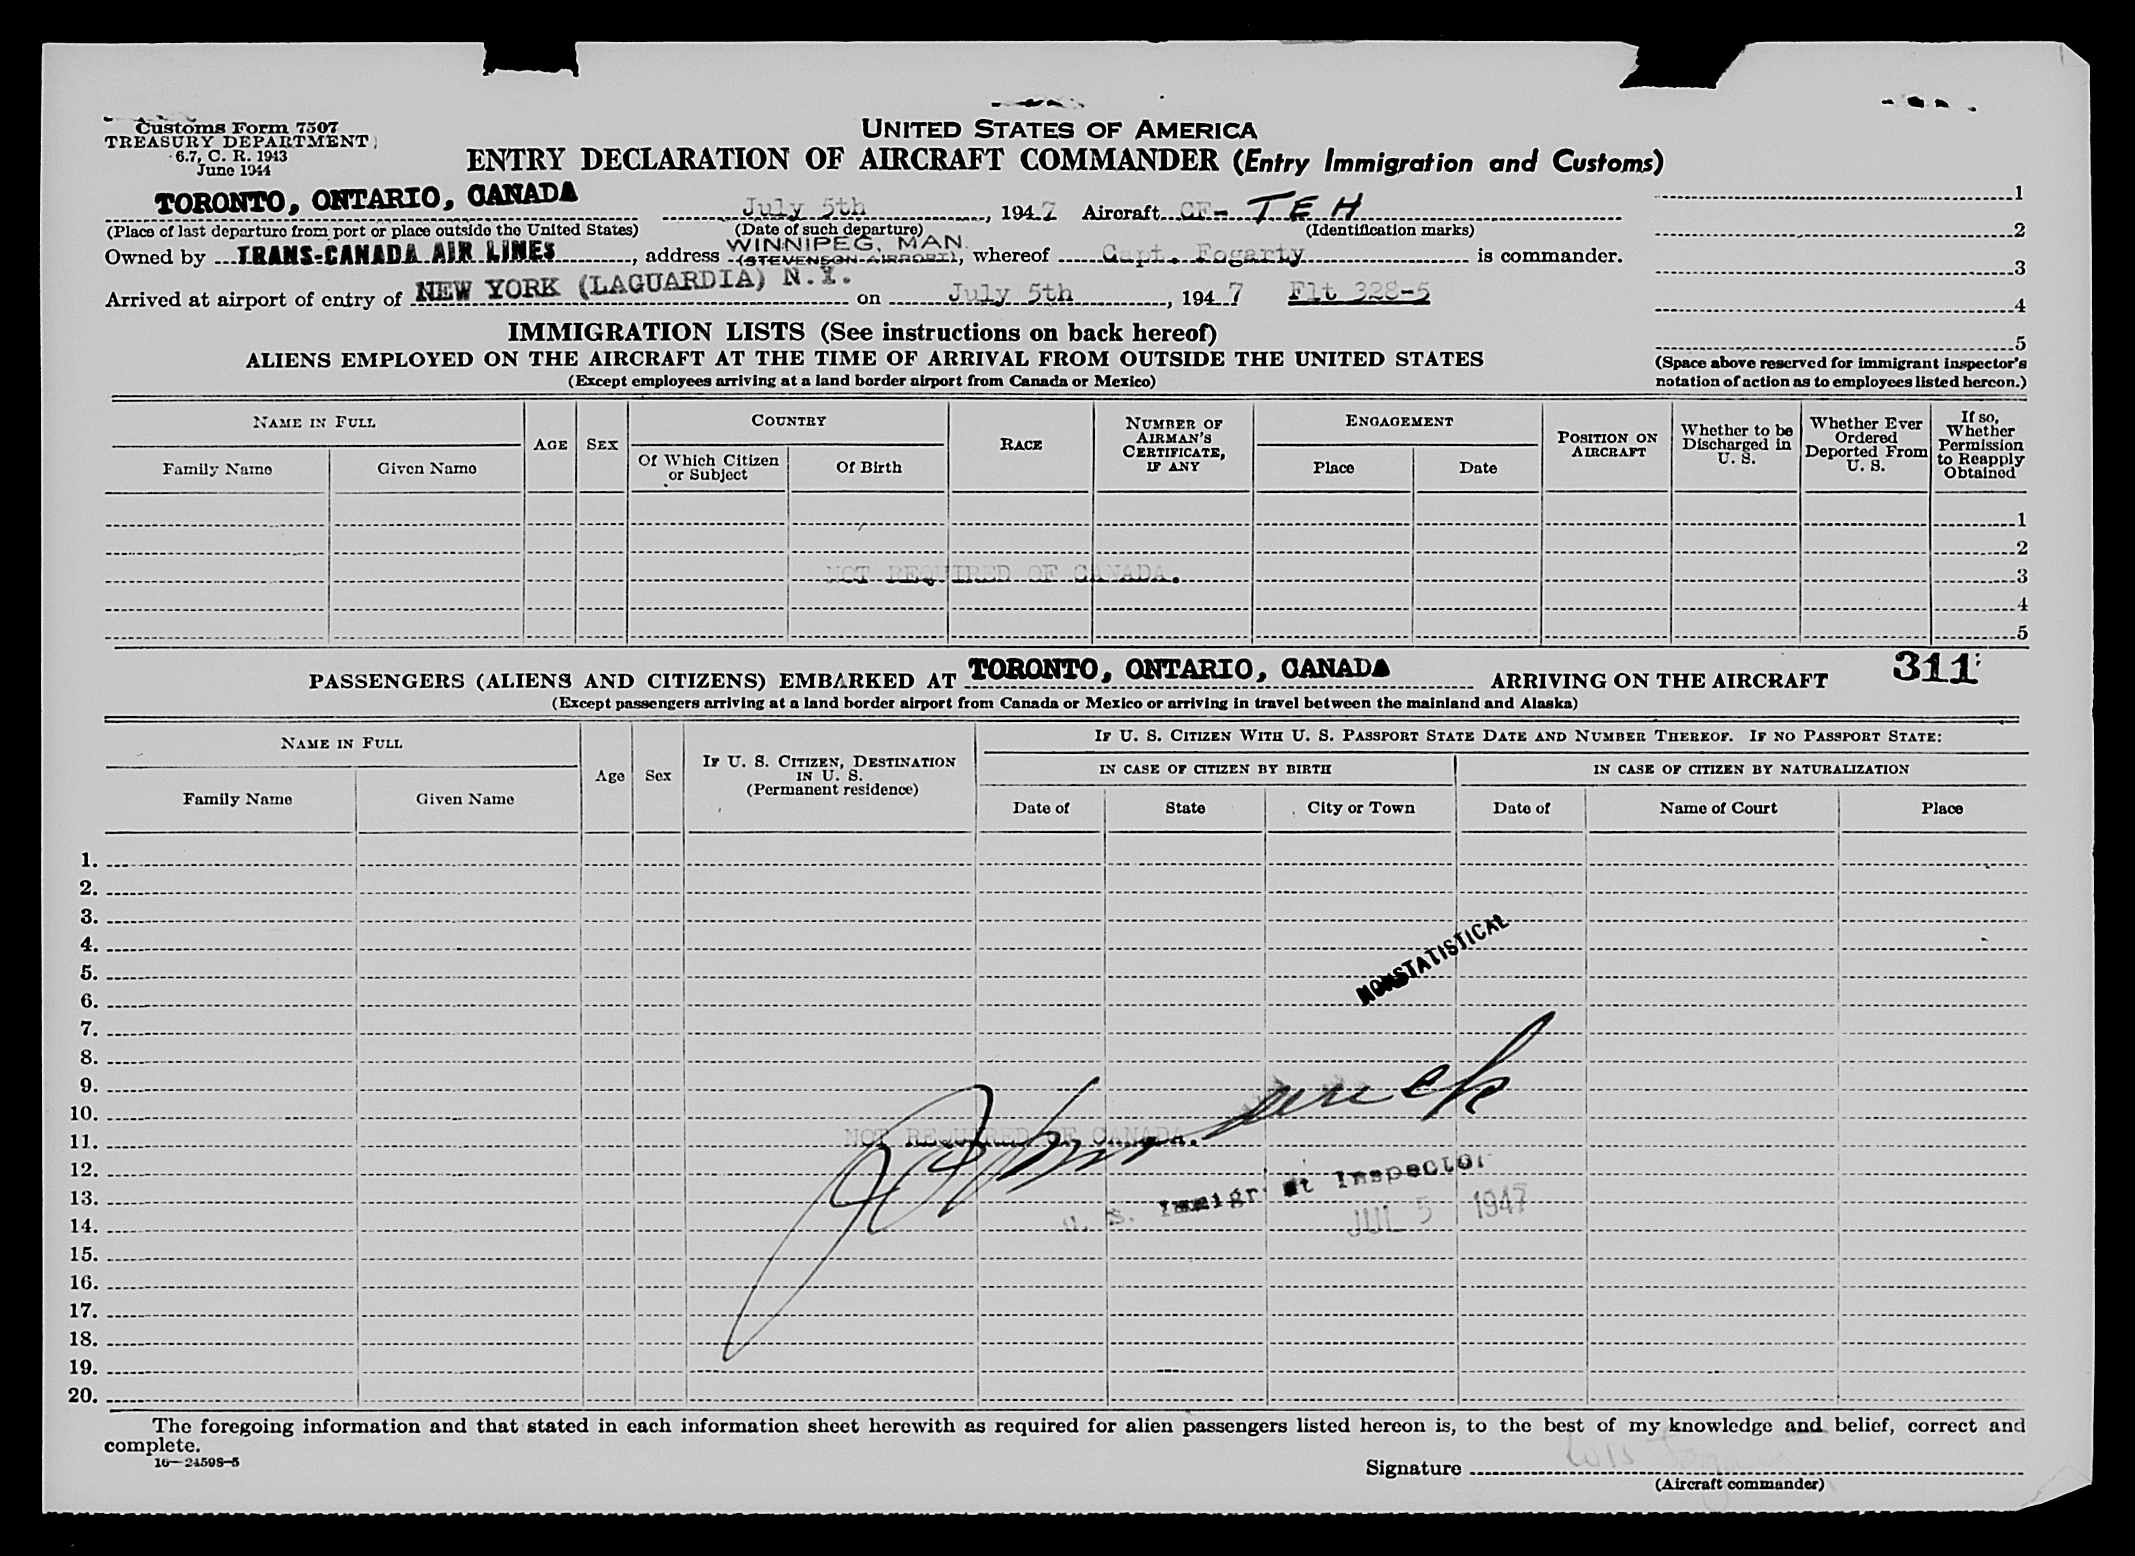 Customs Form 7507
TREASURY DEPARTMENT
6.7, C. R. 1943
June 1944
UNITED STATES OF AMERICA
ENTRY DECLARATION OF AIRCRAFT COMMANDER (Entry Immigration and Customs)
TORONTO, ONTARIO, CANADA July 5th, 1947 Aircraft CF- TEH
(Place of last departure from port or place outside the United States) (Date of such departure) (Identification marks)
WINNIPEG, MAN.
Owned by TRANS-CANADA AIR LINES, address (STEVENSON AIRPORT), whereof Capt. Fogarty is commander.
Arrived at airport of entry of NEW YORK (LAGUARDIA) N.Y. on July 5th, 1947 Flt 328-5
1
2
3
4
5
(Space above reserved for immigrant inspector's
notation of action as to employees listed hereon.)
IMMIGRATION LISTS (See instructions on back hereof)
ALIENS EMPLOYED ON THE AIRCRAFT AT THE TIME OF ARRIVAL FROM OUTSIDE THE UNITED STATES
(Except employees arriving at a land border airport from Canada or Mexico)
NAME IN FULL
Family Name
Given Name
AGE
SEX
COUNTRY
Of Which Citizen
or Subject
Of Birth
RACE
NUMBER OF
AIRMAN'S
CERTIFICATE,
IF ANY
ENGAGEMENT
Place
Date
POSITION ON
AIRCRAFT
Whether to be
Discharged in
U. S.
Whether Ever
Ordered
Deported From
U. S.
If so,
Whether
Permission
to Reapply
Obtained
1
2
NOT REQUIRED OF CANADA. 3
4
5
PASSENGERS (ALIENS AND CITIZENS) EMBARKED AT TORONTO, ONTARIO, CANADA ARRIVING ON THE AIRCRAFT 311
(Except passengers arriving at a land border airport from Canada or Mexico or arriving in travel between the mainland and Alaska)
NAME IN FULL
Family Name
Given Name
Age
Sex
IF U. S. CITIZEN, DESTINATION
IN U. S.
(Permanent residence)
IF U. S. CITIZEN WITH U. S. PASSPORT STATE DATE AND NUMBER THEREOF. IF NO PASSPORT STATE:
IN CASE OF CITIZEN BY BIRTH
IN CASE OF CITIZEN BY NATURALIZATION
Date of
State
City or Town
Date of
Name of Court
Place
1.
2.
3.
4.
NONSTATISTICAL
5.
6.
7.
8.
9.
10.
11. NOT REQUIRED OF CANADA.
12.
13. U. S. Immigrant Inspector
14. JUL 5 1947
15.
16.
17.
18.
19.
20.
The foregoing information and that stated in each information sheet herewith as required for alien passengers listed hereon is, to the best of my knowledge and belief, correct and
complete.
16—24598-5
Signature
(Aircraft commander)